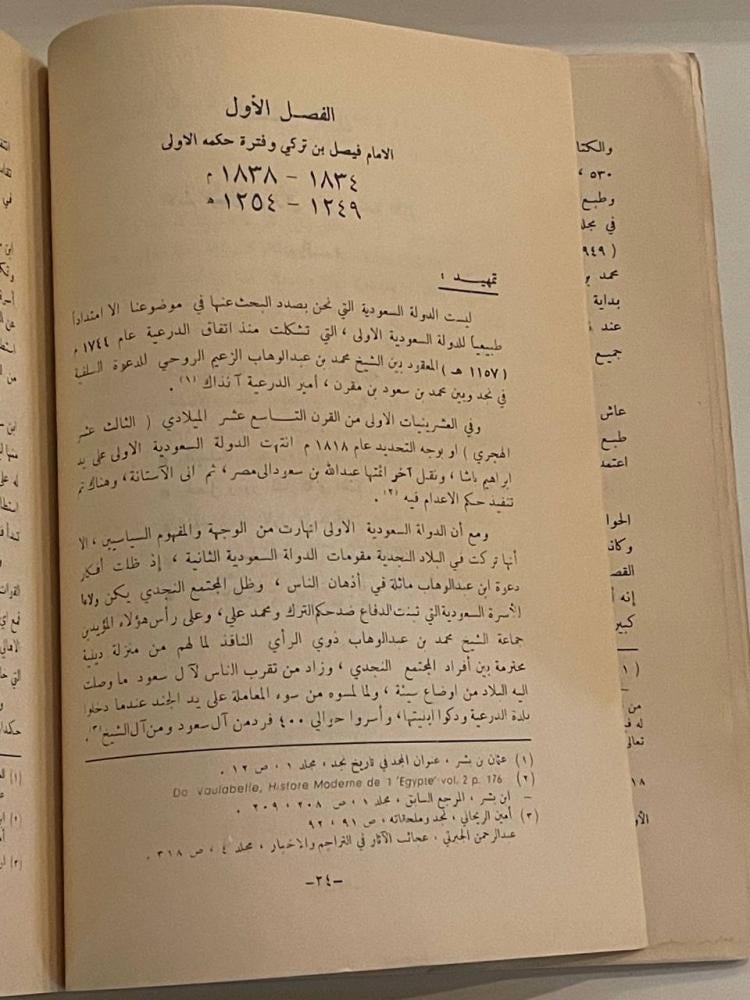 الفصل الأول
الامام فيصل بن تركي وفترة حكمه الاولى
١٨٣٤ – ١٨٣٨ م
١٢٤٩ – ١٢٥٤ هـ
تمهيد :
ليست الدولة السعودية التي نحن بصدد البحث عنها في موضوعنا الا امتداداً
طبيعياً للدولة السعودية الاولى ، التي تشكلت منذ اتفاق الدرعية عام ١٧٤٤ م
( ١١٥٧ هـ ) المعقود بين الشيخ محمد بن عبدالوهاب الزعيم الروحي للدعوة السلفية
في نجد وبين محمد بن سعود بن مقرن ، أمير الدرعية آنذاك (١) .
وفي العشرينيات الاولى من القرن التاسع عشر الميلادي ( الثالث عشر
الهجري ) او بوجه التحديد عام ١٨١٨ م انتهت الدولة السعودية الاولى على يد
ابراهيم باشا ، ونقل آخر ائمتها عبدالله بن سعود الى مصر ، ثم الى الآستانة ، وهناك تم
تنفيذ حكم الاعدام فيه (٢) .
ومع أن الدولة السعودية الاولى انهارت من الوجهة والمفهوم السياسيين ، الا
أنها تركت في البلاد النجدية مقومات الدولة السعودية الثانية ، إذ ظلت أفكار
دعوة ابن عبدالوهاب ماثلة في أذهان الناس ، وظل المجتمع النجدي يكن ولاءا
لأسرة السعودية التي تبنت الدفاع ضد حكم الترك ومحمد علي ، وعلى رأس هؤلاء المؤيدين
جماعة الشيخ محمد بن عبدالوهاب ذوي الرأي النافذ لما لهم من منزلة دينية
محترمة بين أفراد المجتمع النجدي ، وزاد من تقرب الناس لآل سعود ما وصلت
اليه البلاد من اوضاع سيئة ، ولما لمسوه من سوء المعاملة على يد الجند عندما دخلوا
بلدة الدرعية ودكوا ابنيتها، وأسروا حوالي ٤٠٠ فرد من آل سعود ومن آل الشيخ (٣).
(١) عثمان بن بشر ، عنوان المجد في تاريخ نجد ، مجلد ١ ، ص ١٢ .
(٢) Do Vaulabelle, Histore Moderne de 1 'Egypte' vol. 2 p. 176
– ابن بشر ، المرجع السابق ، مجلد ١ ، ص ٢٠٨ ، ٢٠٩ .
(٣) أمين الريحاني ، نجد وملحقاته ، ص ٩١ ، ٩٢
عبدالرحمن الجبرتي ، عجائب الآثار في التراجم والاخبار ، مجلد ٤ ، ص ٣١٨ .
–٣٤–
والكتا
٥٣٠ ،
وطبع
في مجلد
( ٩٤٩
محمد بن
بداية
عند
جميع
عاش
طبع
اعتمد
الحوا
وكاند
القصـ
إنه أ
كبير
( ١
من
له فـ
تعالى
١٨